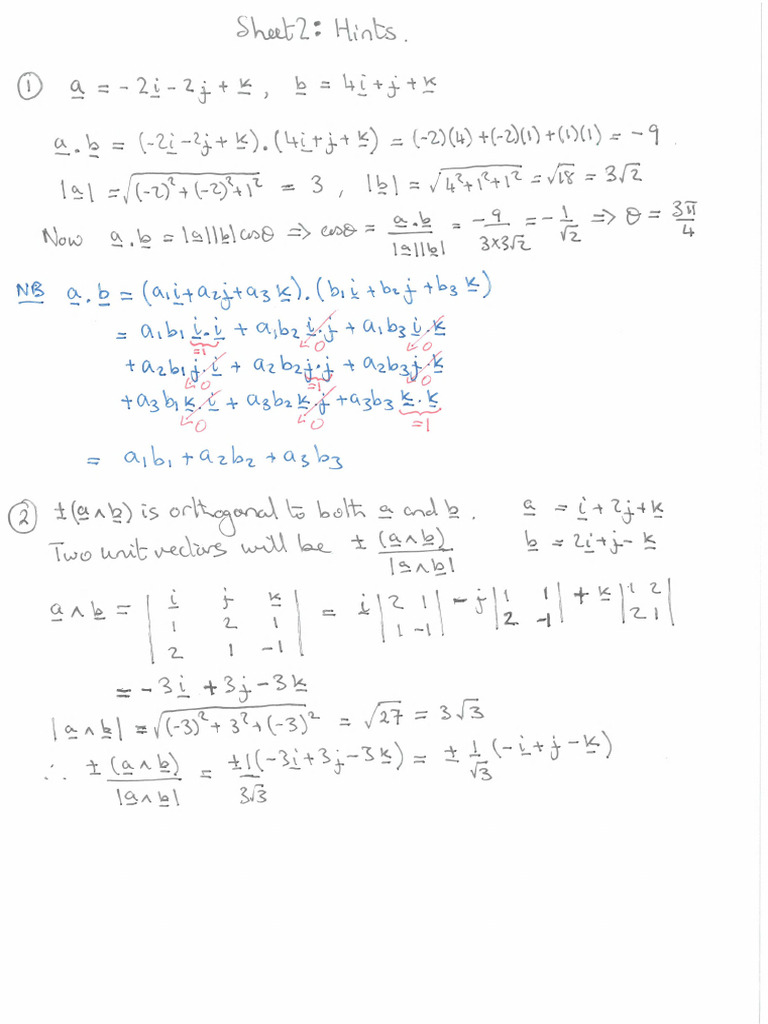 Sheet 2: Hints.
① a = -2i - 2j + k, b = 4i + j + k
a.b = (-2i - 2j + k).(4i + j + k) = (-2)(4) + (-2)(1) + (1)(1) = -9
|a| = √((-2)² + (-2)² + 1²) = 3, |b| = √(4² + 1² + 1²) = √18 = 3√2
Now a.b = |a||b|cosθ ⇒ cosθ = a.b / |a||b| = -9 / 3×3√2 = -1/√2 ⇒ θ = 3π/4
NB a.b = (a₁i + a₂j + a₃k).(b₁i + b₂j + b₃k)
= a₁b₁ i.i + a₁b₂ i.j + a₁b₃ i.k
=1 0 0
+ a₂b₁ j.i + a₂b₂ j.j + a₂b₃ j.k
0 =1 0
+ a₃b₁ k.i + a₃b₂ k.j + a₃b₃ k.k
0 0 =1
= a₁b₁ + a₂b₂ + a₃b₃
② ±(a∧b) is orthogonal to both a and b. a = i + 2j + k
Two unit vectors will be ± (a∧b) / |a∧b| b = 2i + j - k
a∧b = | i j k | = i | 2 1 | - j | 1 1 | + k | 1 2 |
| 1 2 1 | | 1 -1 | | 2 -1 | | 2 1 |
| 2 1 -1 |
= -3i + 3j - 3k
|a∧b| = √((-3)² + 3² + (-3)²) = √27 = 3√3
∴ ± (a∧b) / |a∧b| = ±1 / 3√3 (-3i + 3j - 3k) = ± 1/√3 (-i + j - k)